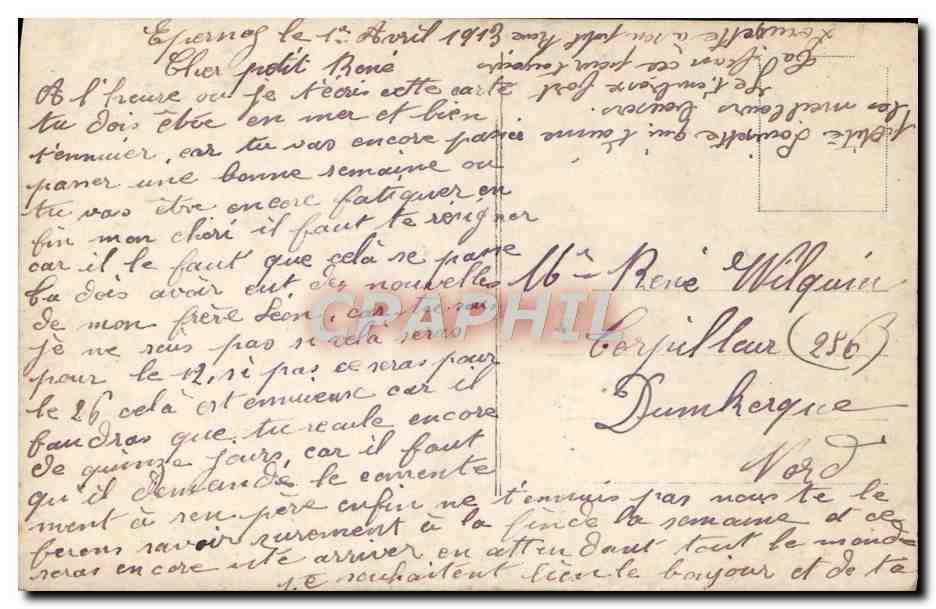 Epernay le 1er Avril 1913
Cher petit René
A l'heure ou je t'ecris cette carte
tu dois être en mer et bien
t'ennuier, car tu vas encore passer
passer une bonne semaine ou
tu vas être encore fatiguer en
fin mon cheri il faut te résigner
car il le faut que celà se passe
tu dois avoir eut des nouvelles
de mon frère Léon, car tu sais
je ne sais pas si celà seras
pour le 12, si pas ce seras pour
le 26 celà est ennuieux car il
faudras que tu recule encore
de quinze jours, car il faut
qu'il demande le consente
ment à son père enfin ne t'ennuis pas nous te le
ferons savoir surement à la fin de la semaine et ce
seras encore vite arriver en attendant tout le monde
se souhaitent bien le bonjour et de ta
Petite Louisette qui t'aime
les meilleurs baisers.
Je t'embrase fort
Louisette à son petit René
Mr René Wilquin
Torpilleur (256)
Dunkerque
Nord
CPAPHIL